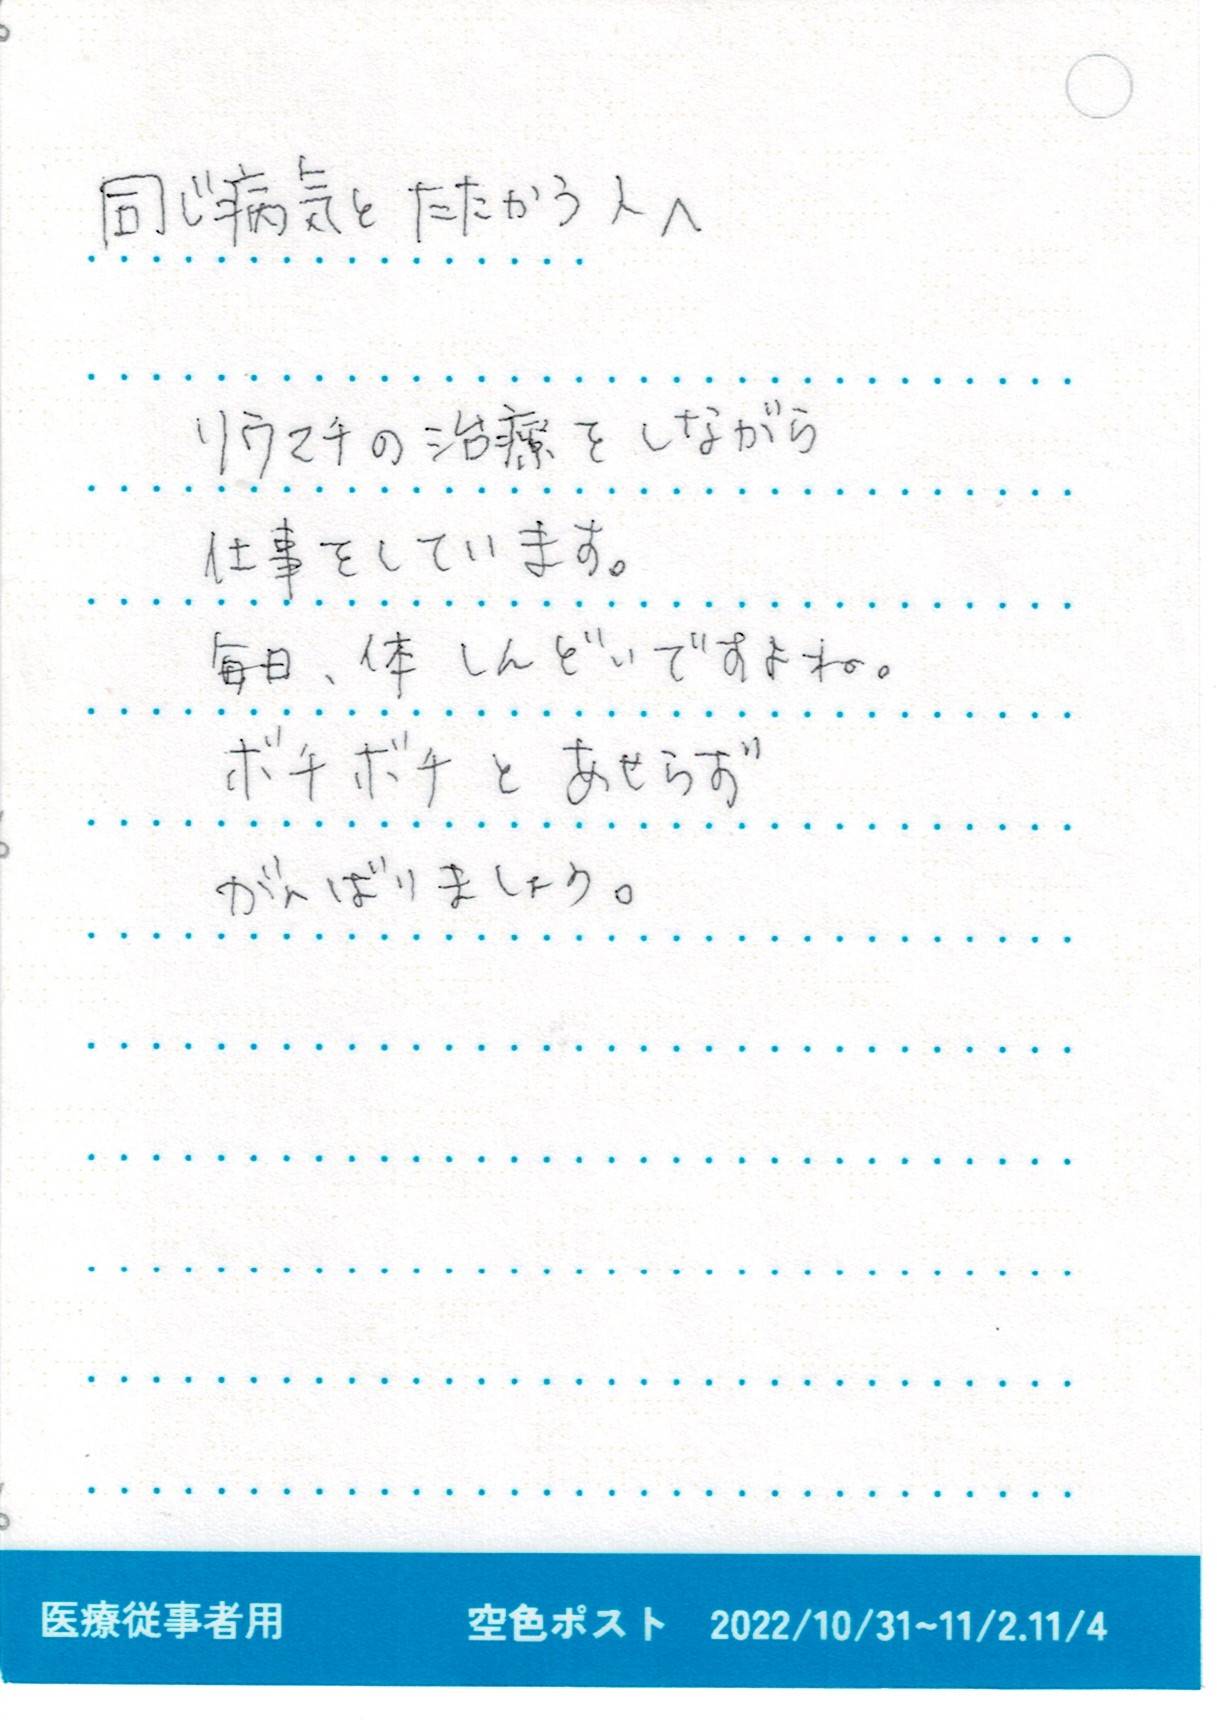 同じ病気とたたかう人へ
リウマチの治療をしながら
仕事をしています。
毎日、体しんどいですよね。
ボチボチとあせらず
がんばりましょう。
医療従事者用 空色ポスト 2022/10/31~11/2.11/4